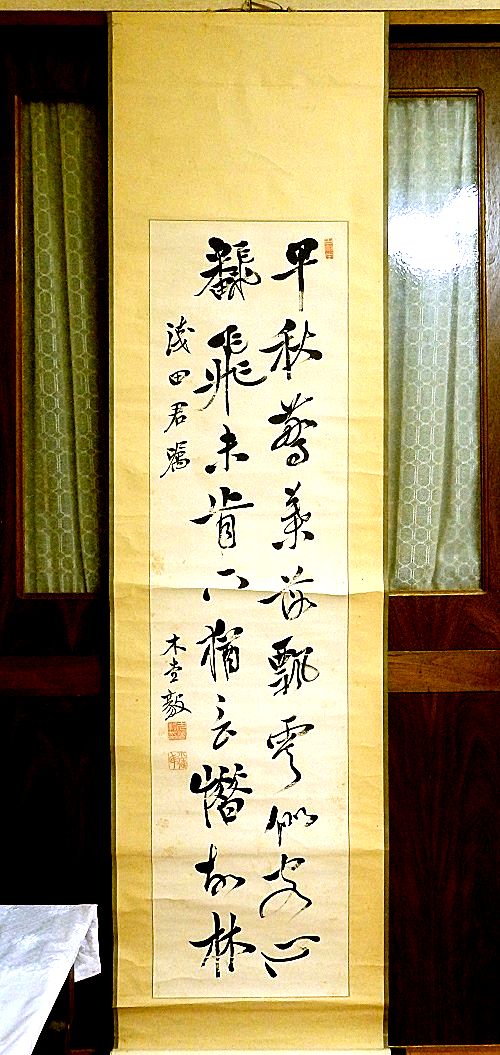 早秋驚葉落飄零似客心
翻飛未肯下猶言惜故林
浅田君嘱
木堂毅